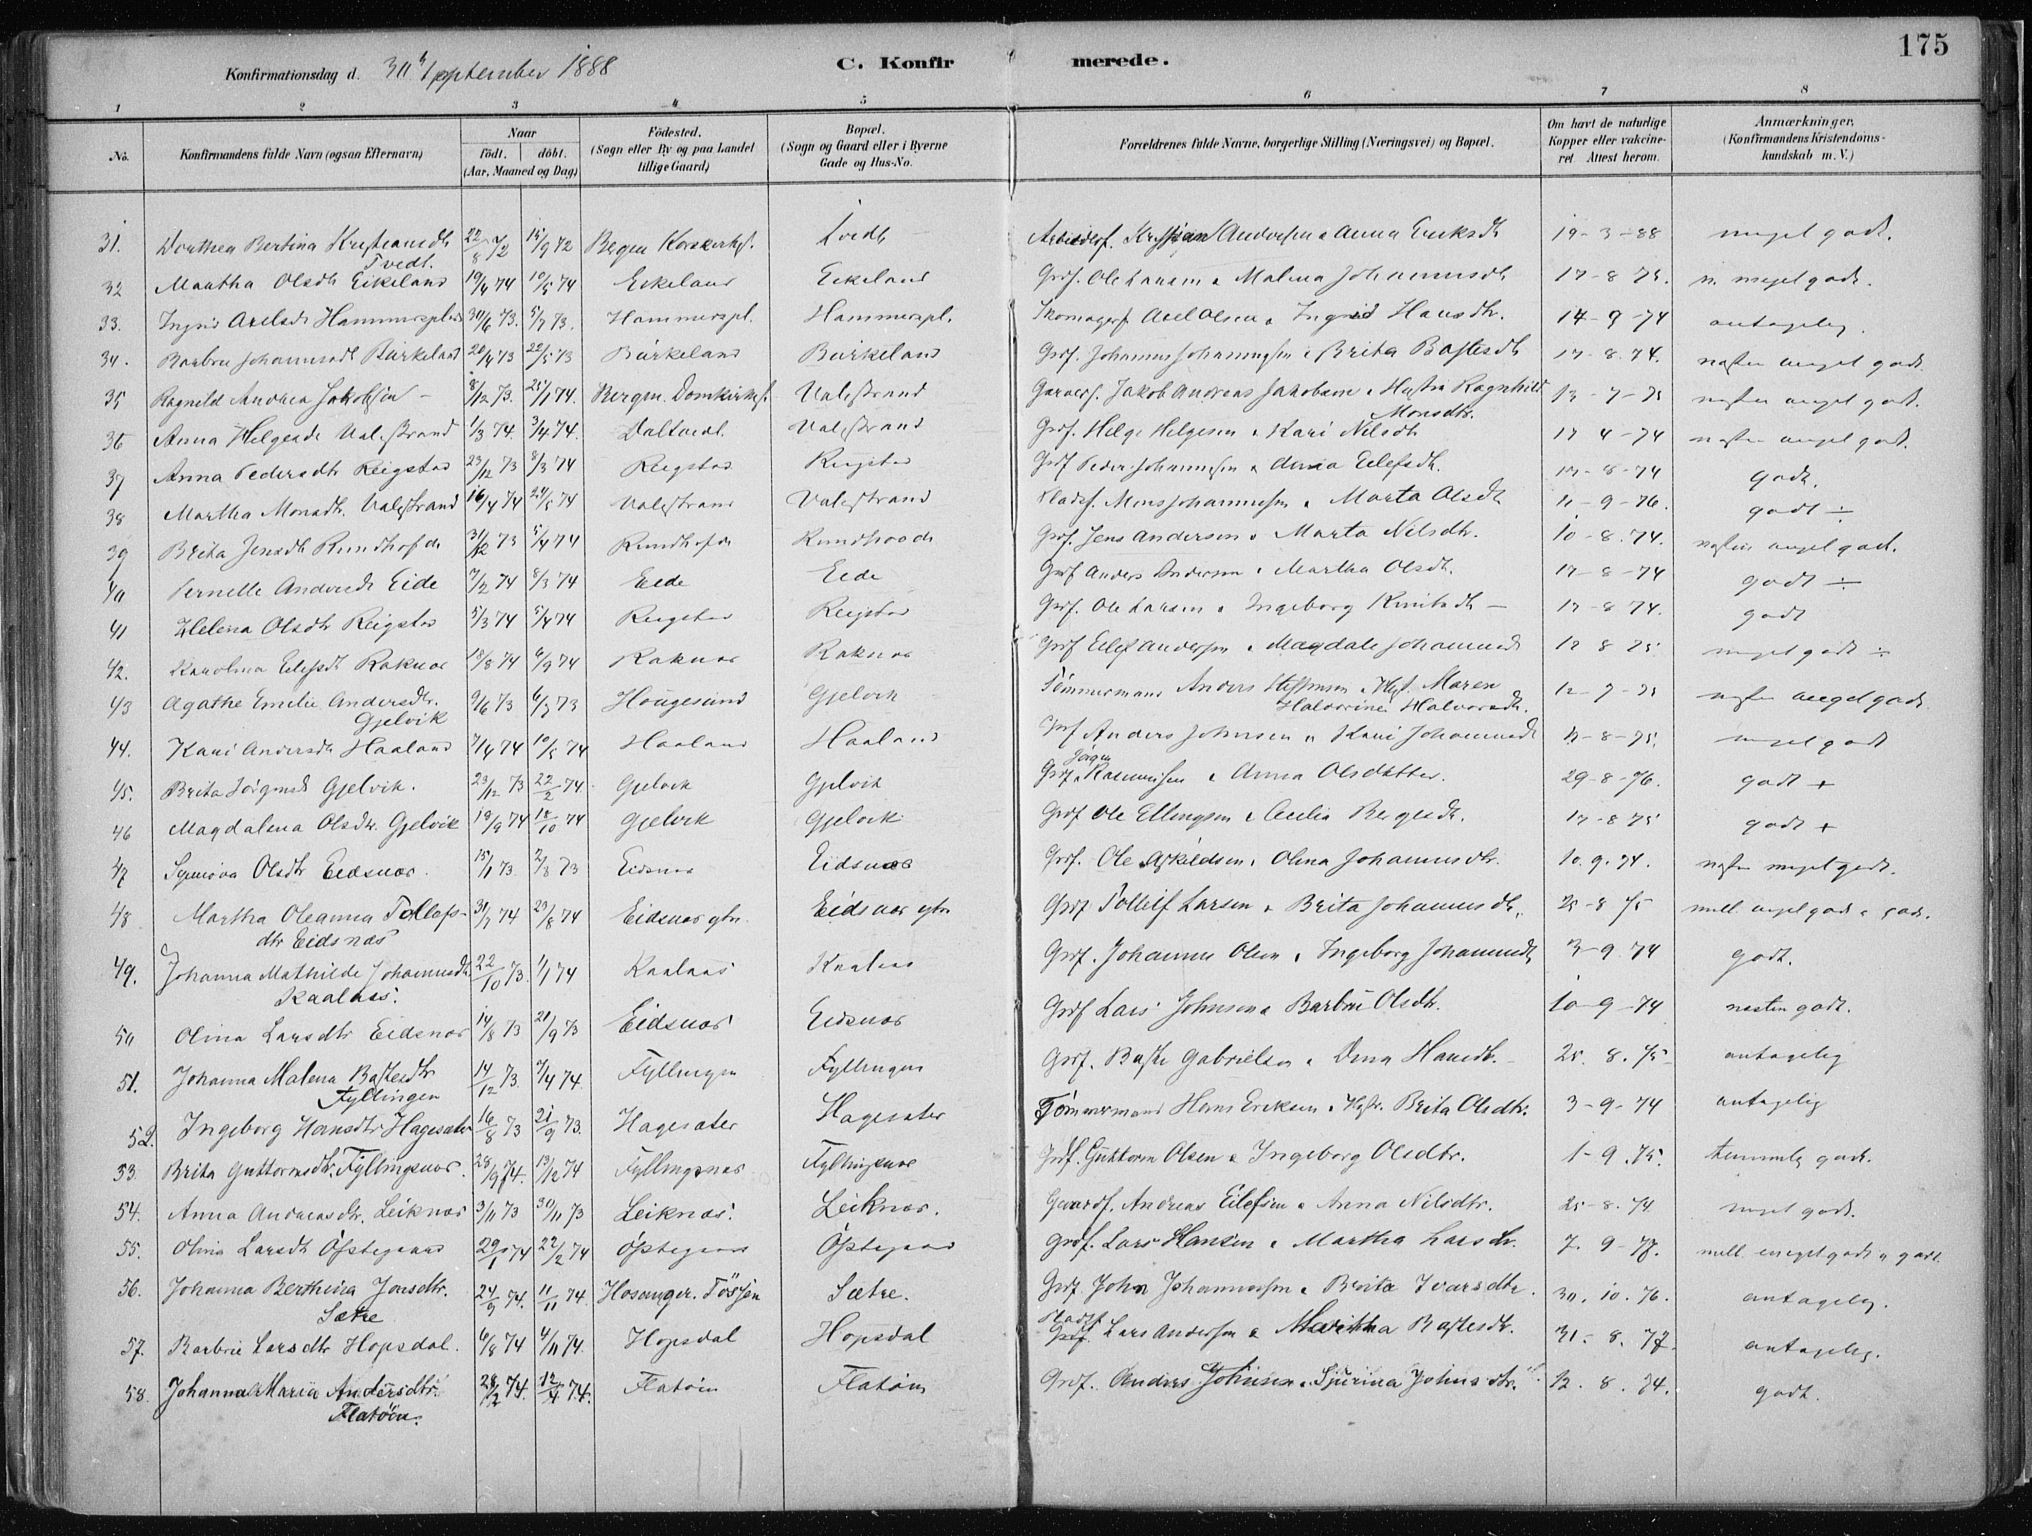 175
Konfirmationsdag d. 30 September 1888 C. Konfirmerede.
1 2 3 4 5 6 7 8
No. Konfirmandens fulde Navn (ogsaa Efternavn) Naar födt. döbt. (Aar, Maaned og Dag) Födested. (Sogn eller By og paa Landet tillige Gaard) Bopæl. (Sogn og Gaard eller i Byerne Gade og Hus-No. Forældrenes fulde Navne, borgerlige Stilling (Næringsvei) og Bopæl. Om havt de naturlige Kopper eller vakcineret Attest herom. Anmærkninger, (Konfirmandens Kristendomskundskab m. V.)
31. Dorthea Bertina Kristiansdtr Tvedt. 22/8 72 15/9 72 Bergen Korskirks. Tvedt Kristian Andersen o Anna Eriksdtr 19-3-88 meget godt.
32 Martha Olsdtr Eikeland 19/4 74 10/5 74 Eikeland Eikeland Grdf. Ole Larsen o Malena Johannesdtr 17-8 75. n. meget godt.
33. Ingrid Axelsdtr Hammerspl. 30/6 73. 5/7 73. Hammerspl. Hammerspl. Skomagerf. Axel Olsen o Ingrid Hansdtr. 14-9-74 antagelig.
34. Barbru Johannesdtr Birkeland 20/4 73 22/5 73 Birkeland Birkeland Grdf. Johannes Johannessen o Brita Bastesdtr 17-8.74. næsten meget godt
35 Ragnild Andrea Jakobsen - 8/12 73. 25/1 74. Bergen Domkirks. Valestrand Garverf. Jakob Andreas Jakobsen o Hustru Ragnhild Monsdtr. 13-7-75 næsten meget godt.
36 Anna Helgesdtr Valestrand 1/3 74. 3/4 74. Daltvedt. Valestrand Grdf. Helge Helgesen o Kari Nilsdtr 17 4-74 næsten meget godt.
37 Anna Pedersdtr Reigstad 23/12 73 8/3 74 Reigstad Reigstad Grdf Peder Johannesen o Anna Eilefsdtr. 17-8-74 godt.
38 Martha Monsdtr. Valestrand 16/4 74 24/5 74 Valestrand Valestrand Pladsf. Mons Johannesen o Marta Olsdtr 11-9-76. godt ÷
39 Brita Jensdtr Rundhovde 31/12 73 5/4 74 Rundhovde Rundhovde Grdf. Jens Andersen o Marta Nilsdtr. 10-8.74. næsten meget godt.
40 Pernelle Andersdtr Eide 7/2 74 8/3 74 Eide Eide Grdf Anders Andersen o Martha Olsdtr. 17-8-74 godt ÷
41 Helena Olsdtr Reigstad 5/3 74 5/4 74 Reigstad Reigstad Grdf. Ole Larsen o Ingeborg Knutsdtr - 17-8 74. godt
42. Karolina Eilefsdtr Raknes 18/8 74 6/9 74 Raknes Raknes Grdf Eilef Andersen o Magdale Johannesdtr 12 8 75 meget godt ÷
43 Agathe Emilie Andersdtr. Gjelvik 9/6 73 6/7 73 Hougesund Gjelvik Tömmermand Anders Steffensen o Hust. Maren Halvorine Halvorsdtr. 12-7-75 næsten meget godt
44. Kari Andersdtr Haaland 7/4 74 10/5 74 Haaland Haaland Grdf Anders Johnsen o Kari Johannesdtr 17-8-75. meget godt
45. Brita Jörgensdtr Gjelvik. 23/12 73 22/2 74 Gjelvik Gjelvik Grdf. Jörgen Rasmussen o Anna Olsdatter. 29-8-76. godt +
46 Magdalena Olsdtr. Gjelvik 19/9 74 18/10 74 Gjelvik Gjelvik Grdf Ole Ellingsen o Cecilia Bergesdtr. 17-8 75 godt +
47 Synnöva Olsdtr Eidsnes. 15/7 73. 2/8 73 Eidsnes Eidsnes Grdf. Ole Askildsen o Olina Johannesdtr. 10.9.74. næsten meget godt.
48 Martha Oleanna Tollefsdtr Eidsnæs 31/7 74 29/8 74 Eidsnes ytre Eidsnes ytre Grdf Tollef Larsen o Brita Johannesdtr. 25-8 75 mell. meget godt o godt.
49. Johanna Mathilde Johannesdtr. Kaalaas. 22/10 73. 1/1 74 Kaalaas Kaalaas Grdf. Johannes Olsen o Ingeborg Johannesdtr 3-9.74 godt.
50 Olina Larsdtr Eidsnes 14/8 73 21/9 73 Eidsnes Eidsnes Grdf Lars Johnsen o Barbru Olsdtr. 10-9-74 næsten godt.
51. Johanna Malena Bastesdtr Fyllingen 14/12 73. 7/4 74. Fyllingen Fyllingen Grdf. Baste Gabrielsen o Dina Hansdtr. 25.8.75 antagelig
52. Ingeborg Hansdtr Hagesæter 16/8 73 21/9 73. Hagesæter Hagesæter Tömmermand Hans Eriksen o Hustr. Brita Olsdtr. 3-9.74 antagelig
53. Brita Guttormsdtr. Fyllingsnes. 28/9 74. 13/12 74 Fyllingsnes Fyllingsnes Grdf. Guttorm Olsen o Ingeborg Olsdtr. 1-9.75. temmelig godt.
54. Anna Andreasdtr. Leiknes 3/11 73 30/11 73 Leiknes. Leiknes. Gaardf. Andreas Eilefsen o Anna Nilsdtr. 25-8.74 meget godt.
55. Olina Larsdtr Öfstegaard 29/1 74 22/2 74 Öfstegaard Öfstegaard Grdf. Lars Hansen o Martha Larsdtr. 7.9-77. mell. meget godt o godt.
56. Johanna Berthina Jonsdtr. Sætre 24/9 74. 11/11 74. Hosanger. Tössen Sætre. Grdf. John Johannessen o Brita Ivarsdtr. 30.10.76. antagelig.
57. Barbru Larsdtr Hopsdal. 6/8 74 4/11 74. Hopsdal Hopsdal Pladsf. Lars Andersen o Maritha Bastesdtr. 31.8.77. antagelig.
58. Johanna Maria Andersdtr. Flatöen. 28/2 74. 12/4 74. Flatöen Flatöen Grdf. Anders Johnsen o Sjurina Johnsdtr. 12.8.74. godt.